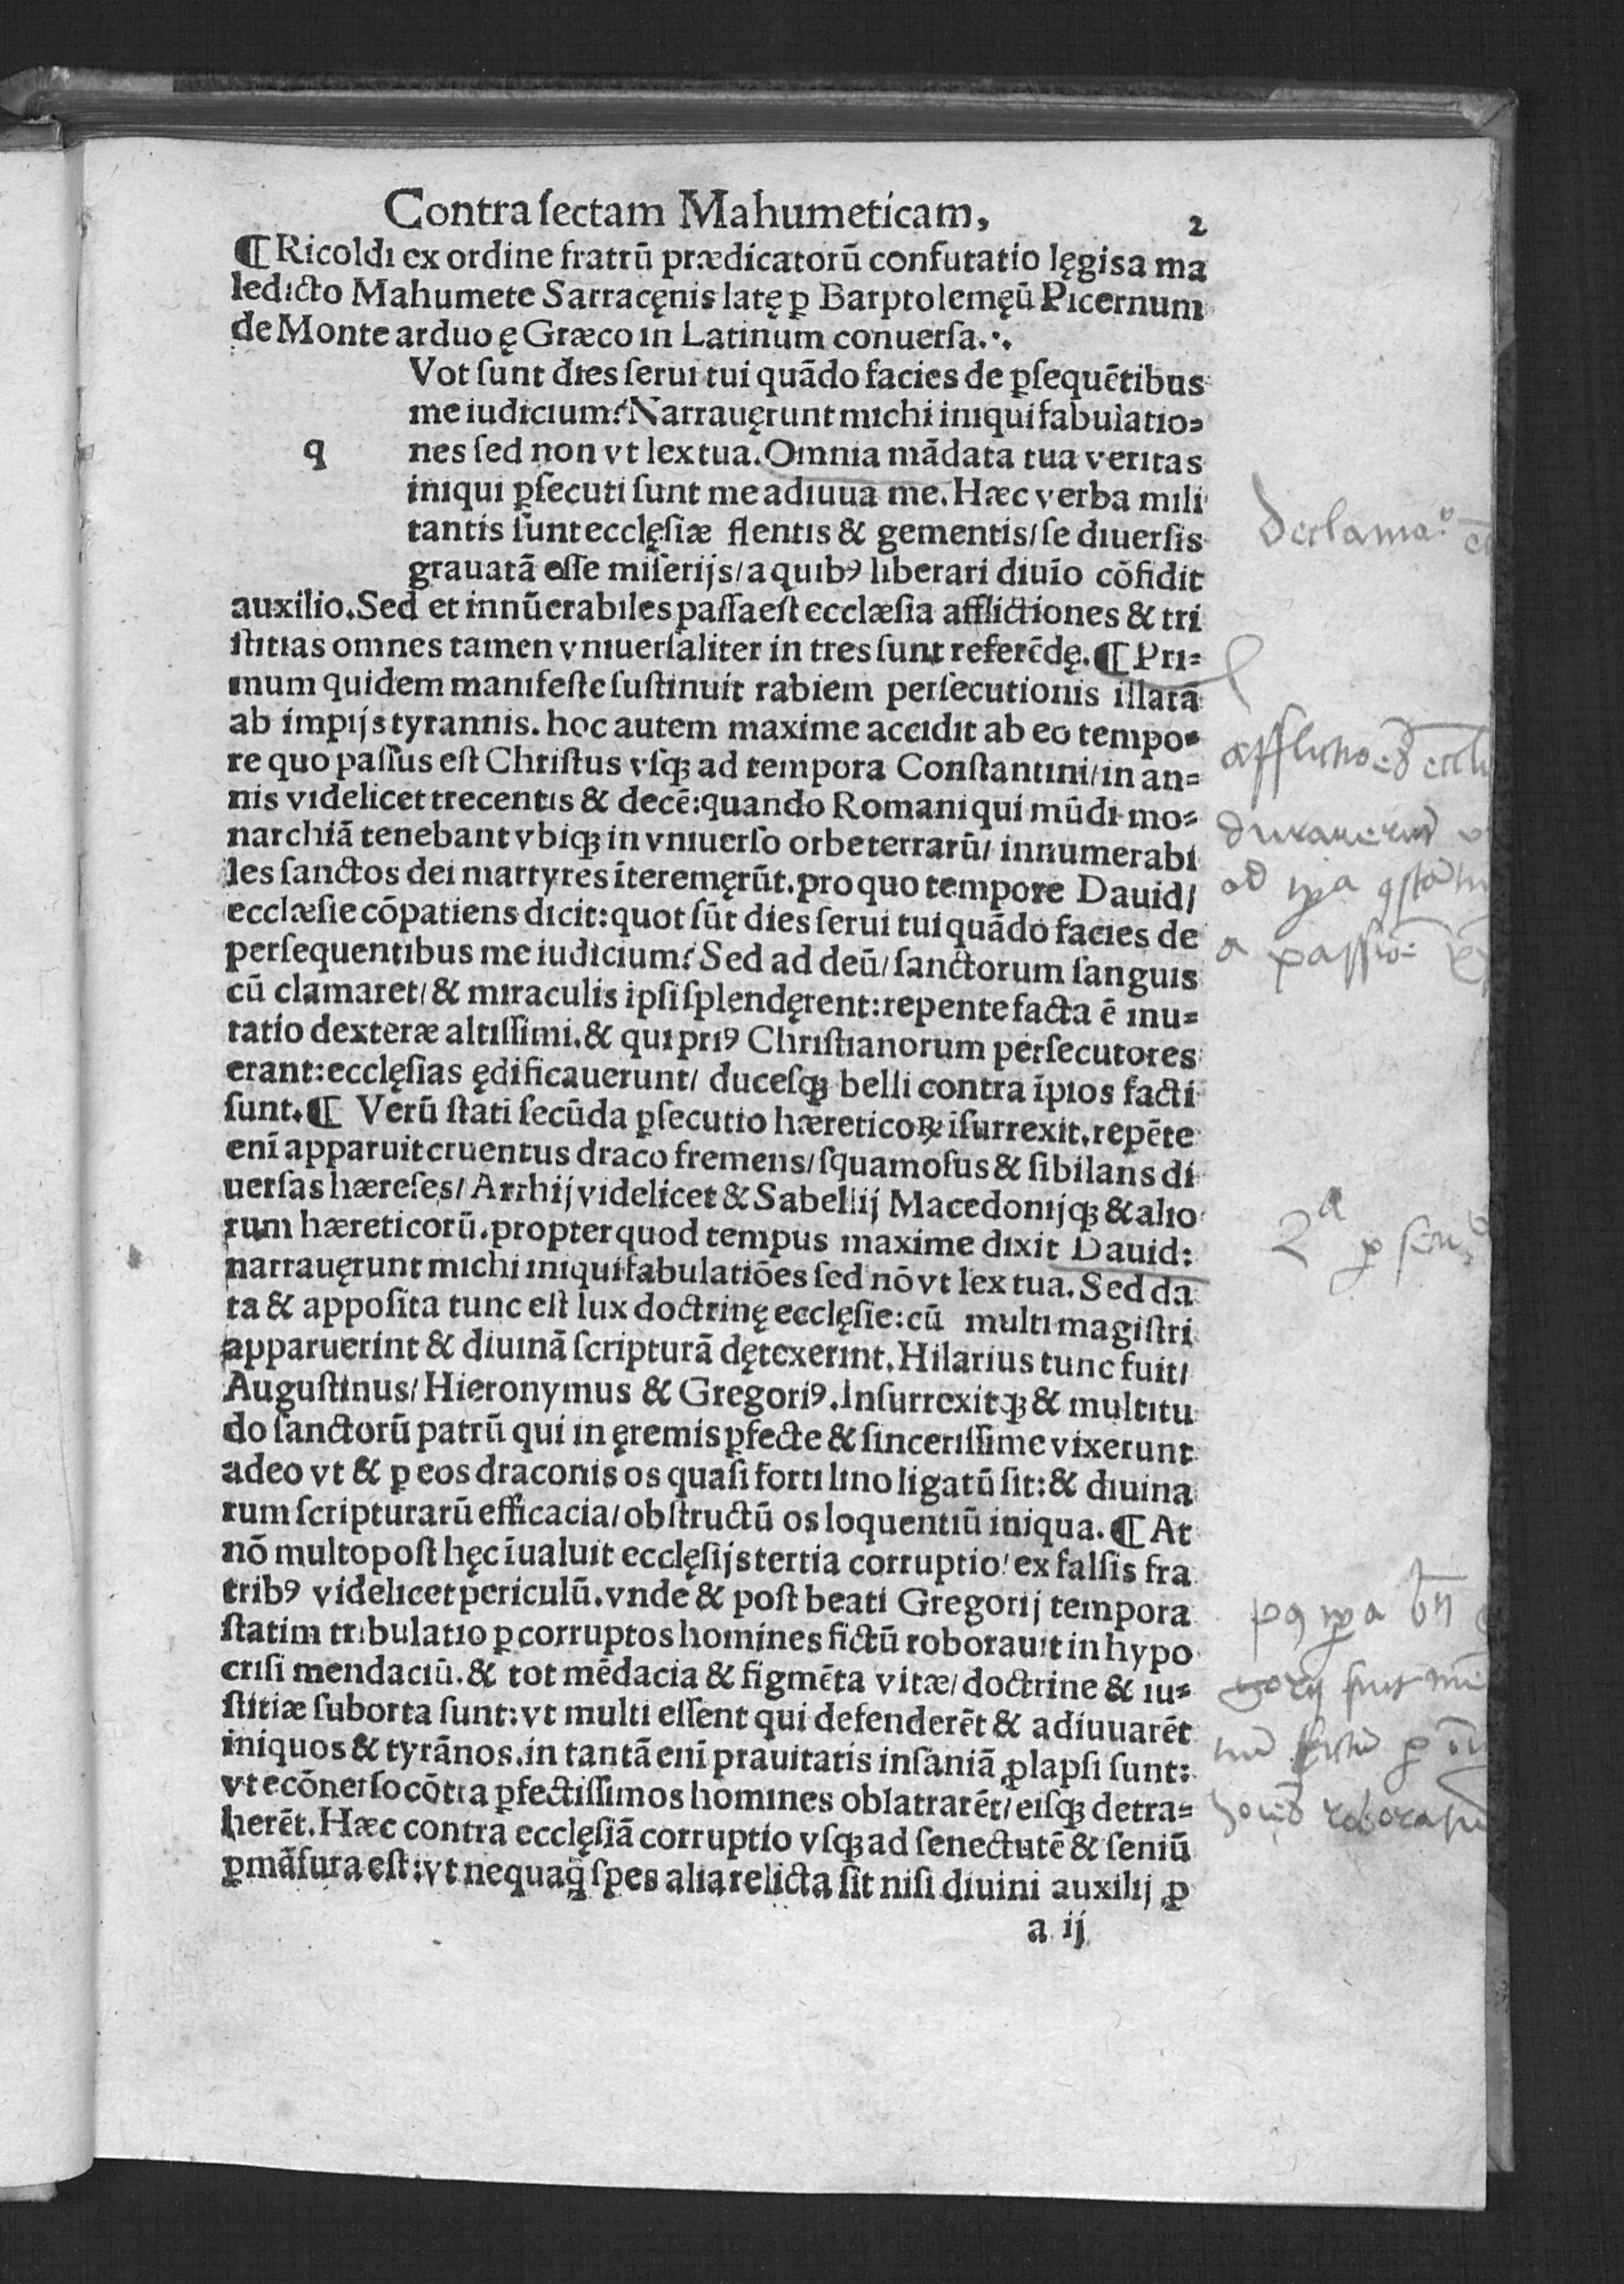 Contra sectam Mahumeticam,
2
¶ Ricoldi ex ordine fratrū prædicatorū confutatio lęgis a ma
ledicto Mahumete Sarracęnis latę ꝑ Barptolemęū Picernum
de Monte arduo ę Græco in Latinum conuersa.·.
Vot sunt dies serui tui quādo facies de ꝑsequētibus
me iudicium? Narrauęrunt michi iniqui fabulatio=
q
nes sed non vt lex tua. Omnia mādata tua veritas
iniqui ꝑsecuti sunt me adiuua me. Hæc verba mili
tantis sunt ecclęsiæ flentis & gementis/ se diuersis
grauatā esse miserijs/ a quibꝰ liberari diuīo cōfidit
auxilio. Sed et innūerabiles passa est ecclæsia afflictiones & tri
stitias omnes tamen vniuersaliter in tres sunt referēdę. ¶ Pri=
mum quidem manifeste sustinuit rabiem persecutionis illatā
ab impijs tyrannis. hoc autem maxime accidit ab eo tempo=
re quo passus est Christus vsqꝫ ad tempora Constantini/ in an=
nis videlicet trecentis & decē: quando Romani qui mūdi mo=
narchiā tenebant vbiqꝫ in vniuerso orbe terrarū/ innumerabi
les sanctos dei martyres īteremęrūt. pro quo tempore Dauid/
ecclæsie cōpatiens dicit: quot sūt dies serui tui quādo facies de
persequentibus me iudicium? Sed ad deū/ sanctorum sanguis
cū clamaret/ & miraculis ipsi splendęrent: repente facta ē mu=
tatio dexteræ altissimi. & qui priꝰ Christianorum persecutores
erant: ecclęsias ędificauerunt/ ducesqꝫ belli contra īpios facti
sunt. ¶ Verū stati secūda ꝑsecutio hæreticoꝝ isurrexit. repēte
enī apparuit cruentus draco fremens/ squamosus & sibilans di
uersas hæreses/ Arrhij videlicet & Sabellij Macedonijqꝫ & alio
rum hæreticorū. propter quod tempus maxime dixit Dauid:
narrauęrunt michi iniqui fabulatiōes sed nō vt lex tua. Sed da
ta & apposita tunc est lux doctrinę ecclęsie: cū multi magistri
apparuerint & diuinā scripturā dętexerint. Hilarius tunc fuit/
Augustinus/ Hieronymus & Gregoriꝰ. Insurrexitqꝫ & multitu
do sanctorū patrū qui in ęremis ꝑfecte & sincerissime vixerunt
adeo vt & ꝑ eos draconis os quasi forti lino ligatū sit: & diuina
rum scripturarū efficacia/ obstructū os loquentiū iniqua. ¶ At
nō multo post hęc īualuit ecclęsijs tertia corruptio/ ex falsis fra
tribꝰ videlicet periculū. vnde & post beati Gregorij tempora
statim tribulatio ꝑ corruptos homines fictū roborauit in hypo
crisi mendaciū. & tot mēdacia & figmēta vitæ/ doctrine & iu=
stitiæ suborta sunt: vt multi essent qui defenderēt & adiuuarēt
iniquos & tyrānos. in tantā enī prauitatis insaniā ꝓlapsi sunt:
vt ecōuerso cōtra ꝑfectissimos homines oblatrarēt/ eisqꝫ detra=
herēt. Hæc contra ecclęsiā corruptio vsqꝫ ad senectutē & seniū
ꝑmāsura est: vt nequaq̄ spes alia relicta sit nisi diuini auxilij ꝓ
a ij